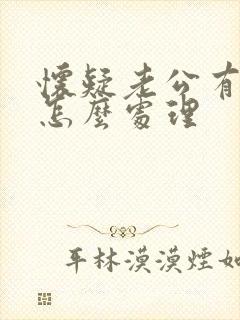 懷疑老公有
怎麼處理
平林漠漠煙如